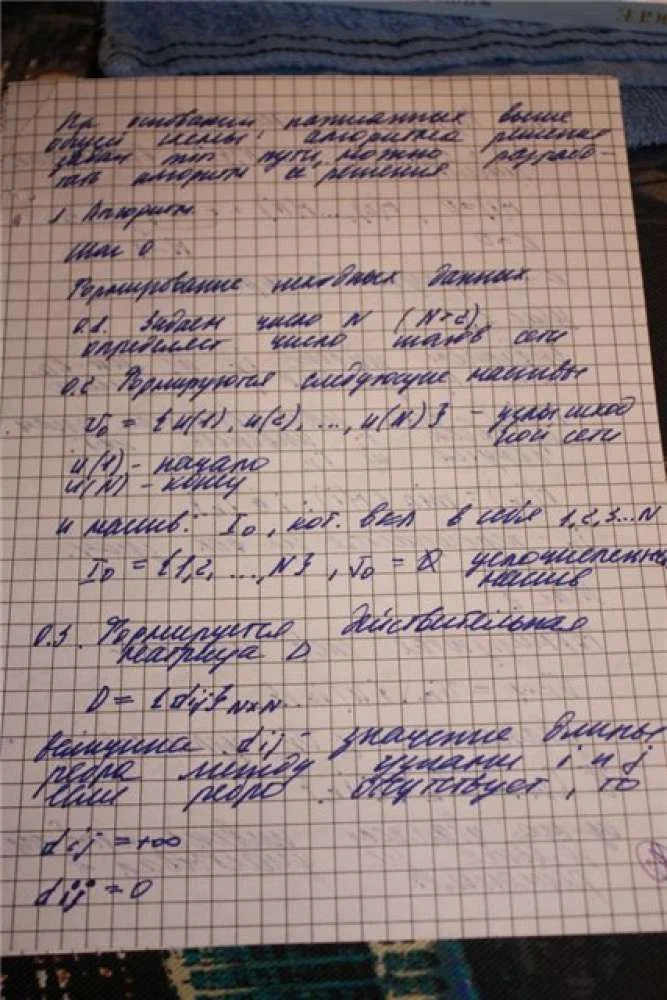 На основании написанных выше
общей схемы алгоритма решения
задач пути, можно разрабо-
тать алгоритм её решения.
1. Алгоритм.
Шаг 0
Формирование исходных данных
0.1. Задаем число N (N>2)
определяет число узлов сети
0.2 Формируются следующие массивы
V₀ = {u(1), u(2), ..., u(N)} - узлы исход
ной сети
u(1) - начало
u(N) - конец
и массив: I₀, кот. вкл в себя 1,2,3...N
I₀ = {1,2, ..., N}, J₀ = Ø целочисленный
массив
0.3. Формируется действительная
матрица D
D = {dij}N×N
величина dij - значение длины
ребра между узлами i и j
если ребро отсутствует, то
dij = +∞
dij = 0